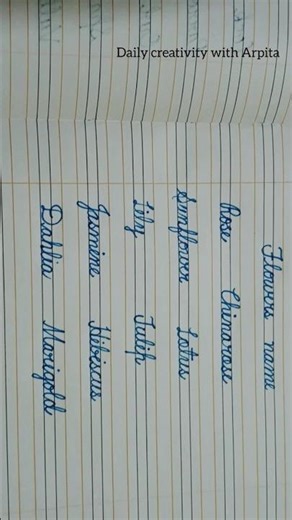 Daily creativity with Arpita
Flowers name
Rose Chinarose
Sunflower Lotus
Lily Tulip
Jasmine Hibiscus
Dahlia Marigold